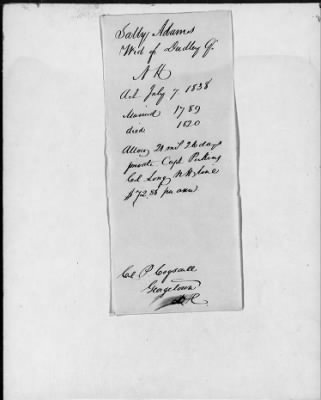 Sally Adams
Wid of Dudley G.
N H
Act July 7 1838
Married 1789
died 1820
Allow 21 mos 26 days
private Capt Perkins
Col Long N H line
$72.88 per ann
Col P. Cogswell
Georgetown